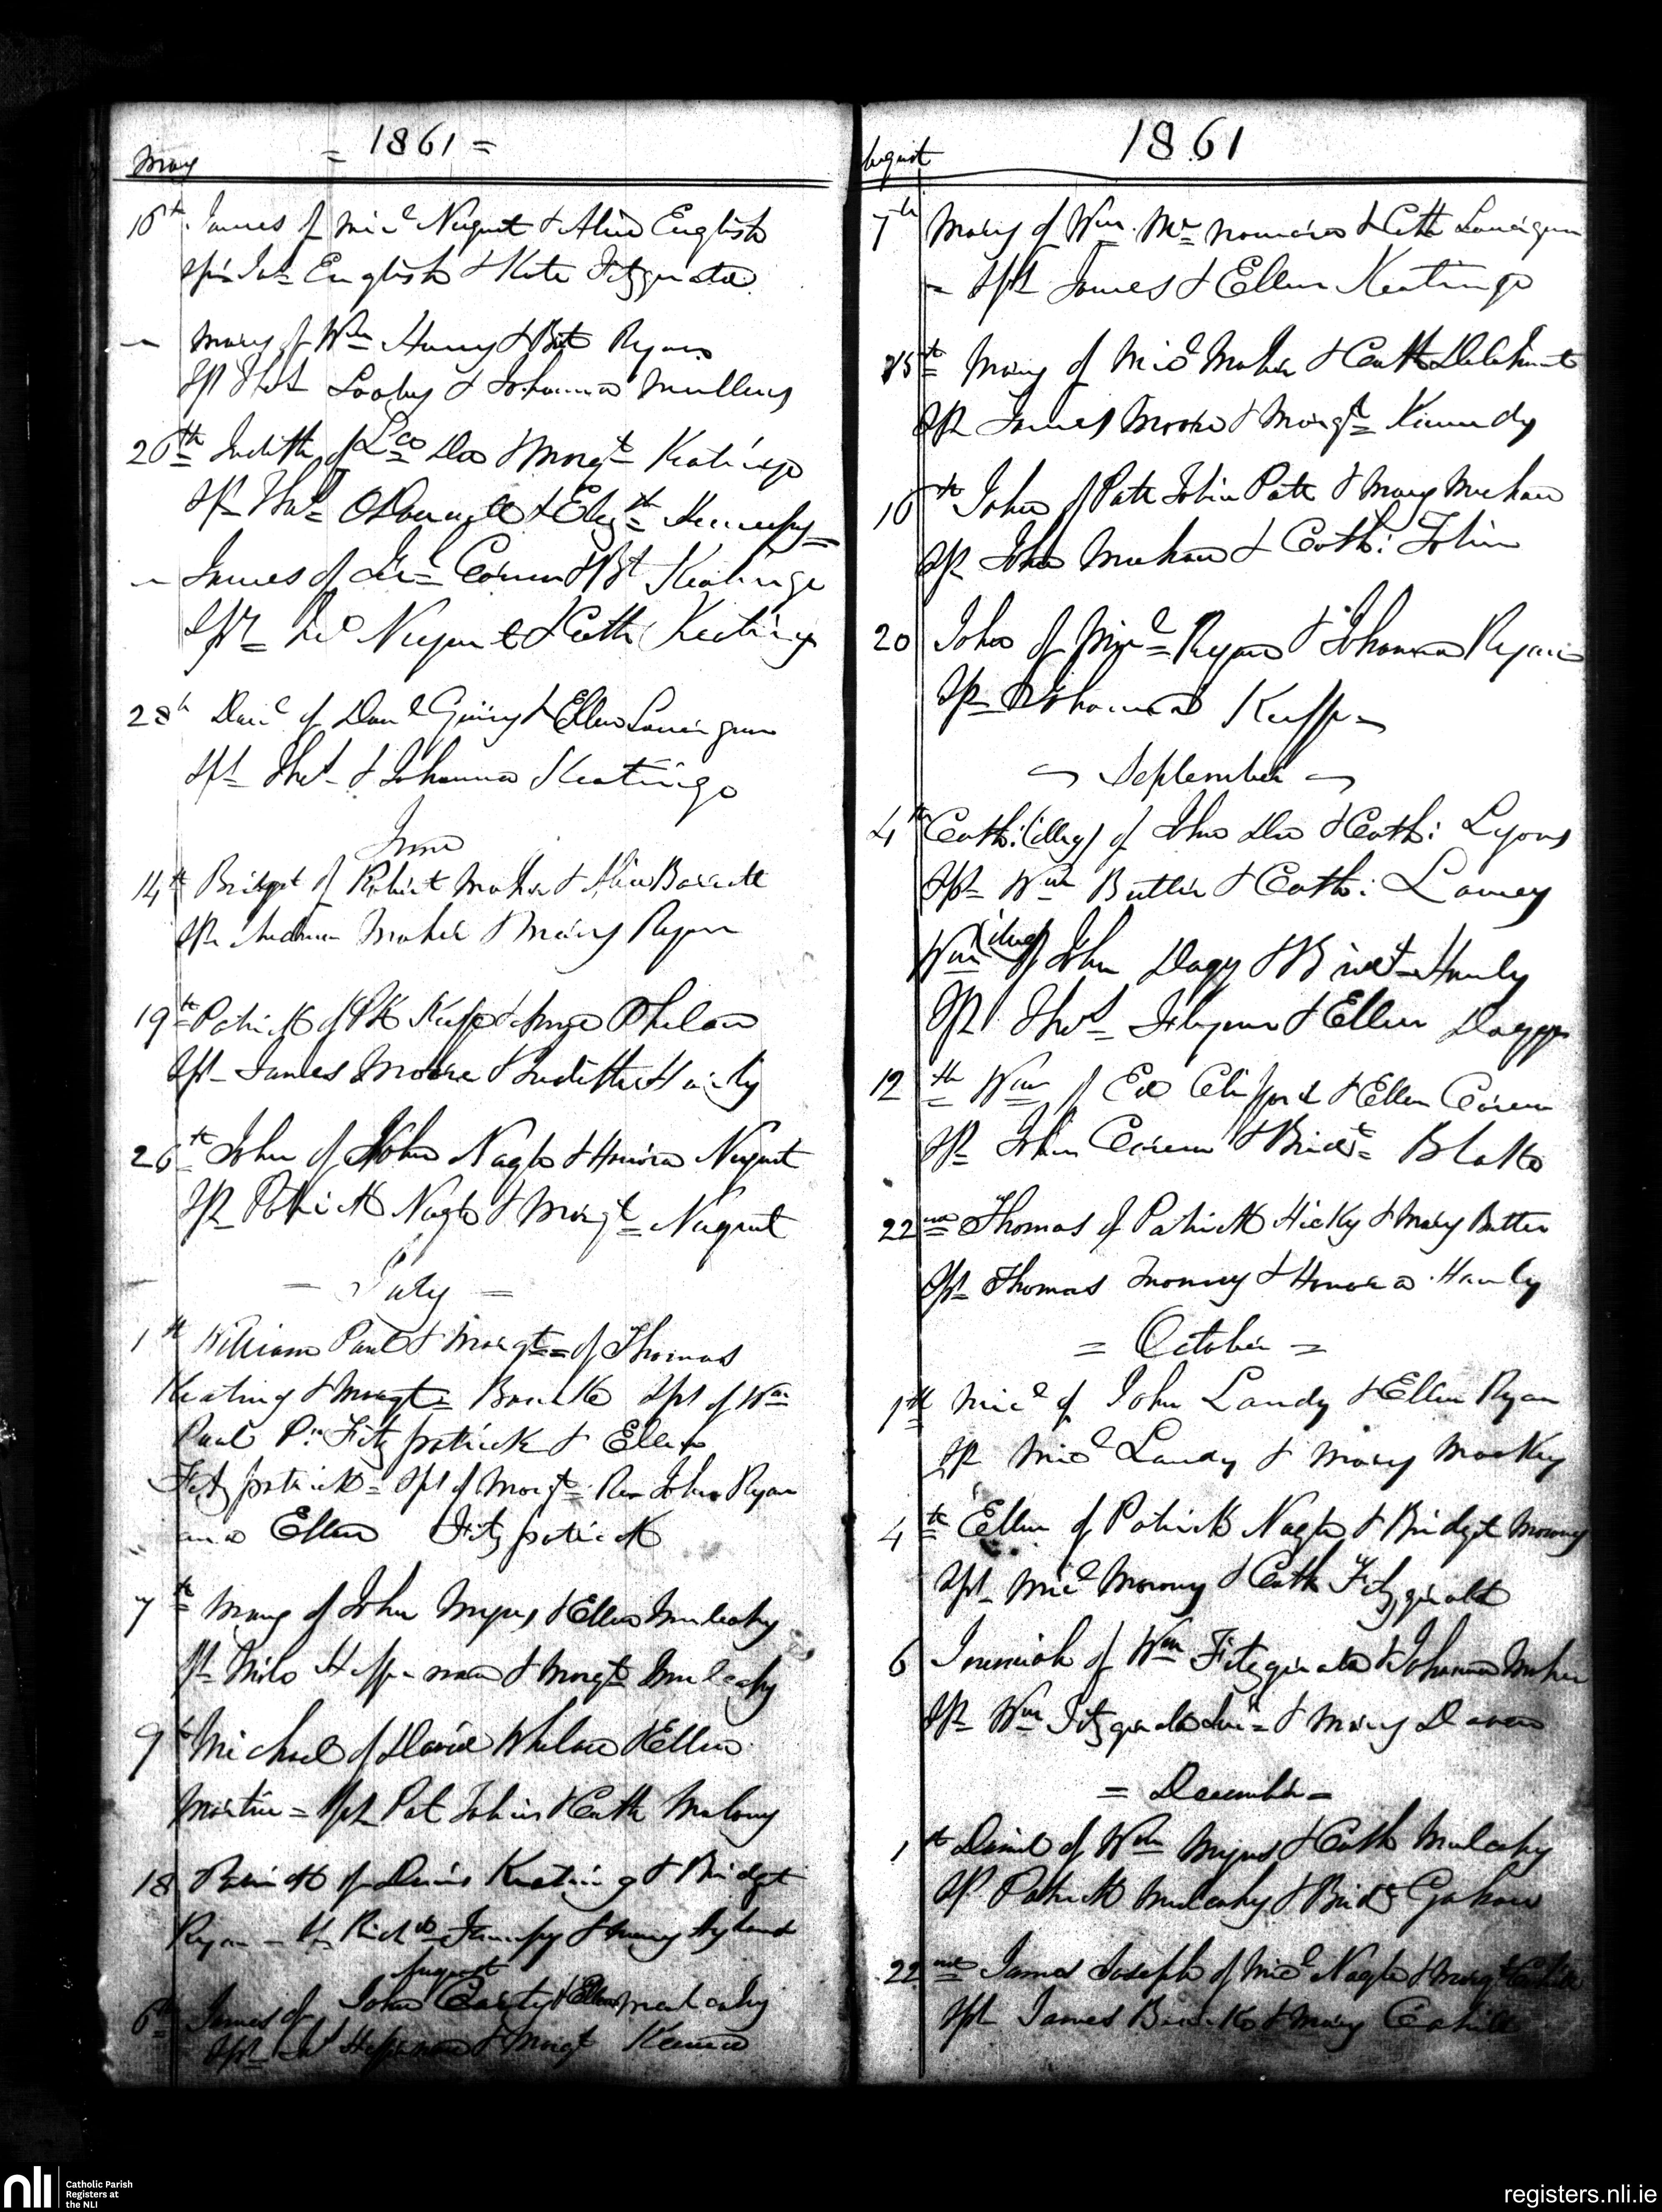 = 1861 =
May
16th James of Micl Nugent & Alice English
Sps Jas English & Kate Fitzgerald
— Mary of Wm Harry & Bt Ryan
Sp Thos Looby & Johanna Mullins
26th Judith of Lce Doo & Margt Keatinge
Sps Thos & Elizth
— James of Comm & Bt Keatinge
Sps Nugent & Cath Keating
28th Danl of Danl & Ellen Lonergan
Sps Thos & Johanna Keatinge
June
14th Bridget of Robert Maher & Alice Barrett
Sps Andrew Maher & Mary Ryan
19th Patrick of Pk Keffe & Anne Phelan
Sps James Moore & Judith Hanly
26th John of John Nagle & Honora Nugent
Sps Patrick Nagle & Margt Nugent
= July =
1st William Paul & Margt = of Thomas
Keating & Margt = Bourke Sps of Wm
Paul Fitzpatrick & Ellen
Fitzpatrick = Sps of Margt = Rev John Ryan
and Ellen Fitzpatrick
7th Mary of John Myers & Ellen Mulcahy
Sp Milo Heffernan & Margt Mulcahy
9th Michael of David Whelan & Ellen
Martin = Sps Pat Tobin & Cath Malony
18 Patrick of Denis Keating & Bridget
Ryan — Sps Richd & Mary Hyland
August
6th James of John Carty & Ellen Mulcahy
Sps Heffernan & Margt
1861
August
7th Mary of Wm McNamara & Cath Lonergan
— Sps James & Ellen Keatinge
15th Mary of Micl Maher & Cath Delahunt
Sps James Moore & Margt Kennedy
16th John of Patk Tobin Patk & Mary Meehan
Sps John Meehan & Cath: Tobin
20 John of Micl = Ryan & Johanna Ryan
Sps Johanna Keffe
— September —
4th Cath: (illeg) of John Doo & Cath: Lyons
Sps Wm Butler & Cath:
Wm (illeg) of John Dagg & Bridt Hanly
Sps Thos & Ellen Dagg
12th Wm of Ed Clifford & Ellen
Sps John & Bridt = Blake
22nd Thomas of Patrick Hicky & Mary Butler
Sps Thomas Moroney & Honora Hanly
= October =
1st Micl of John Landy & Ellen Ryan
Sps Micl Landy & Mary Mackey
4th Ellen of Patrick Nagle & Bridget Morony
Sps Micl Morony & Cath Fitzgerald
6 Jeremiah of Wm Fitzgerald & Johanna Maher
Sps Wm Fitzgerald & Mary Daven
= December =
1st Daniel of Wm Myers & Cath Mulcahy
Sp Patrick Mulcahy & Bridt Gahan
22nd James Joseph of Micl Nagle & Margt Cahill
Sps James Bourke & Mary Cahill
nli
Catholic Parish
Registers at
the NLI
registers.nli.ie